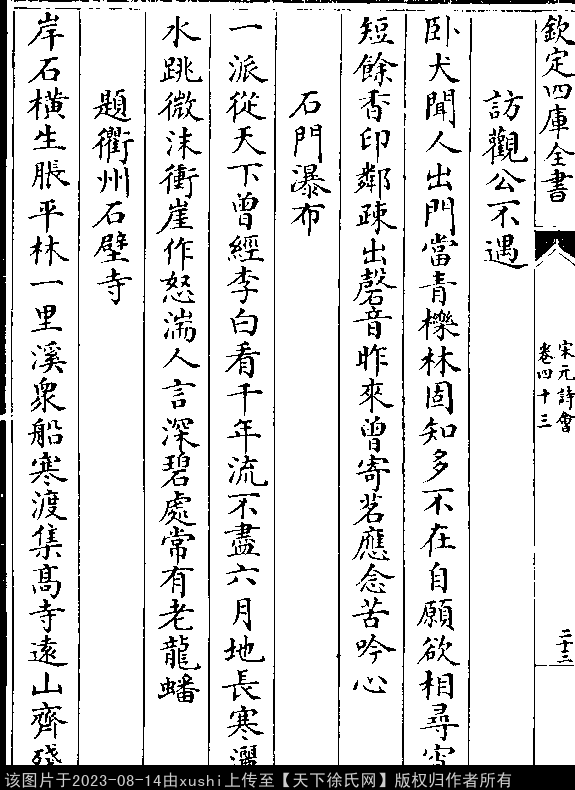 欽定四庫全書
宋元詩會
卷四十三
二十三
訪觀公不遇
卧犬聞人出門當青櫟林固知多不在自願欲相尋
短餘香印鄰疎出磬音昨來曾寄茗應念苦吟心
石門瀑布
一派從天下曾經李白看千年流不盡六月地長寒
水跳微沫衝崖作怒湍人言深碧處常有老龍蟠
題衢州石壁寺
岸石橫生脹平林一里溪衆船寒渡集髙寺遠山齊
该图片于2023-08-14由xushi上传至【天下徐氏网】版权归作者所有